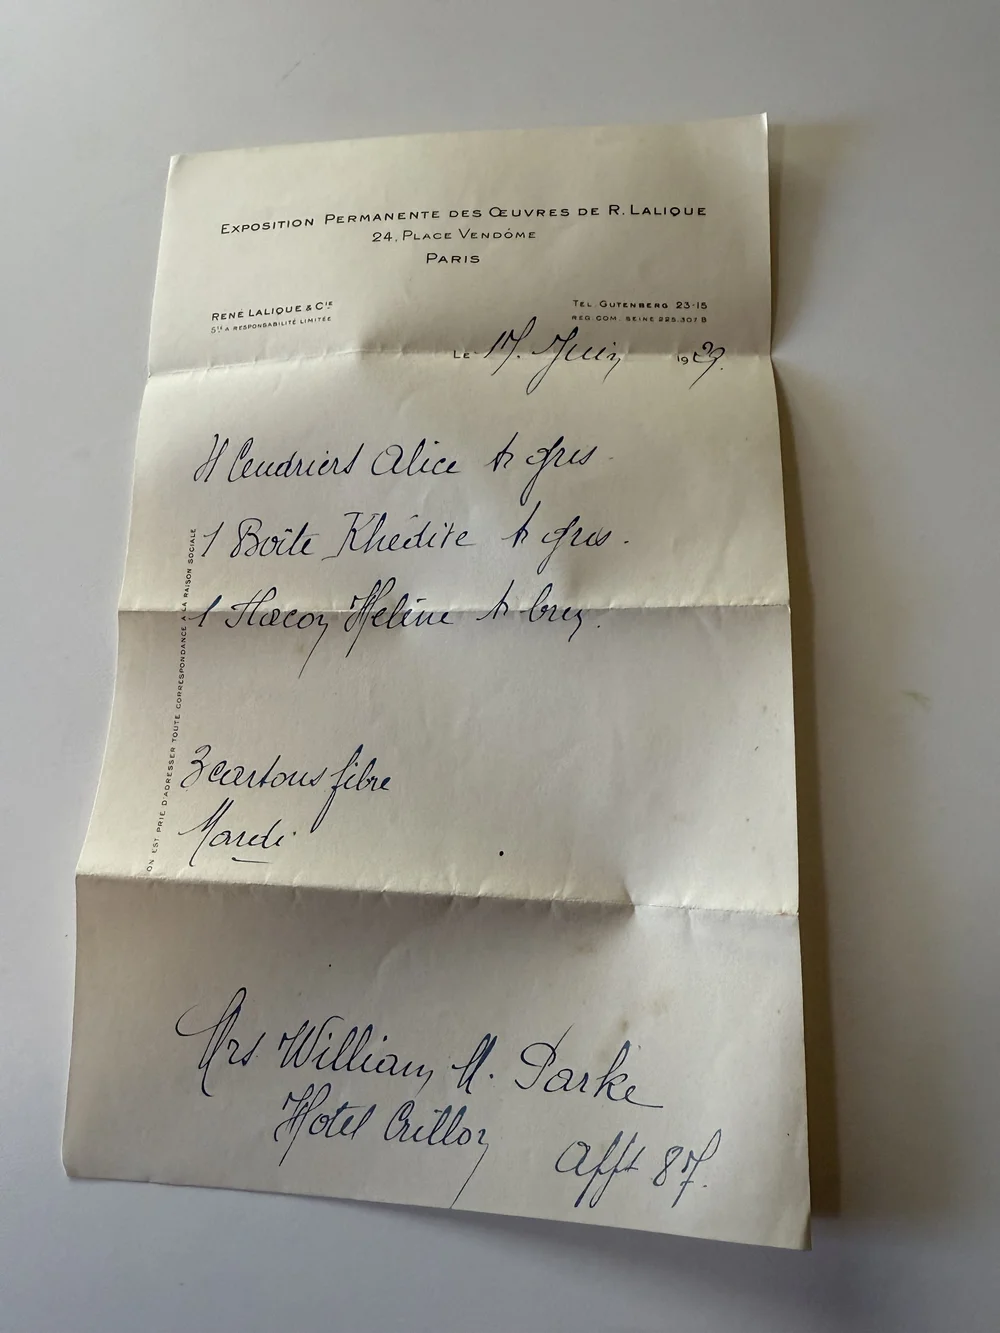 EXPOSITION PERMANENTE DES ŒUVRES DE R. LALIQUE
24, PLACE VENDÔME
PARIS
RENÉ LALIQUE & Cie
Sté A RESPONSABILITÉ LIMITÉE
TEL. GUTENBERG 23-15
REG. COM. SEINE 225.307 B
LE 17 Juin 1929.
4 Cendriers Alice tr gris.
1 Boîte Khédive tr gris.
1 Flacon Helène tr
3 cartons fibre
Mardi
ON EST PRIÉ D'ADRESSER TOUTE CORRESPONDANCE A LA RAISON SOCIALE
Mrs William M. Parke
Hotel Crillon
Appt 87.